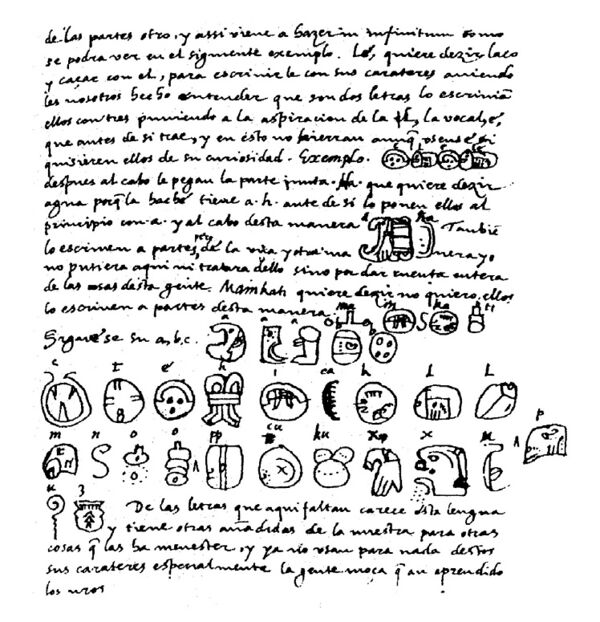 de las partes otro, y assi viene a hazer in infinitum como
se podra ver en el siguiente exemplo. Lé, quiere dezir laço
y caçar con el, para escrivirle con sus carateres aviendo
les nosotros hecho entender que son dos letras lo escrivian
ellos con tres puniendo a la aspiracion de la l, la vocal, é,
que antes de si trae, y en esto no hierran aunq̃ osense si
quisieren ellos de su curiosidad. Exemplo. e l e le
despues al cabo le pegan la parte junta. Ha. que quiere dezir
agua porq̃ la haché tiene a. h. ante de si lo ponen ellos al
principio con .a. y al cabo desta manera a ha Tambiẽ
lo escriven a partes, pero de la una y otra ma nera, yo
no pusiera aqui ni tratara dello sino por dar cuenta entera
de las cosas desta gente. Mainkati quiere dezir no quiero, ellos
lo escriven a partes desta manera. ma i n ka ti
Siguese su a, b, c. a a a b b
c t é h i ca k l l
m n o o pp cu ku x x u p
u z De las letras que aqui faltan carece esta lengua
y tiene otras añadidas de la nuestra para otras
cosas q̃ las ha menester, y ya no usan para nada destos
sus carateres especialmente la gente moça q̃ an aprendido
los nros